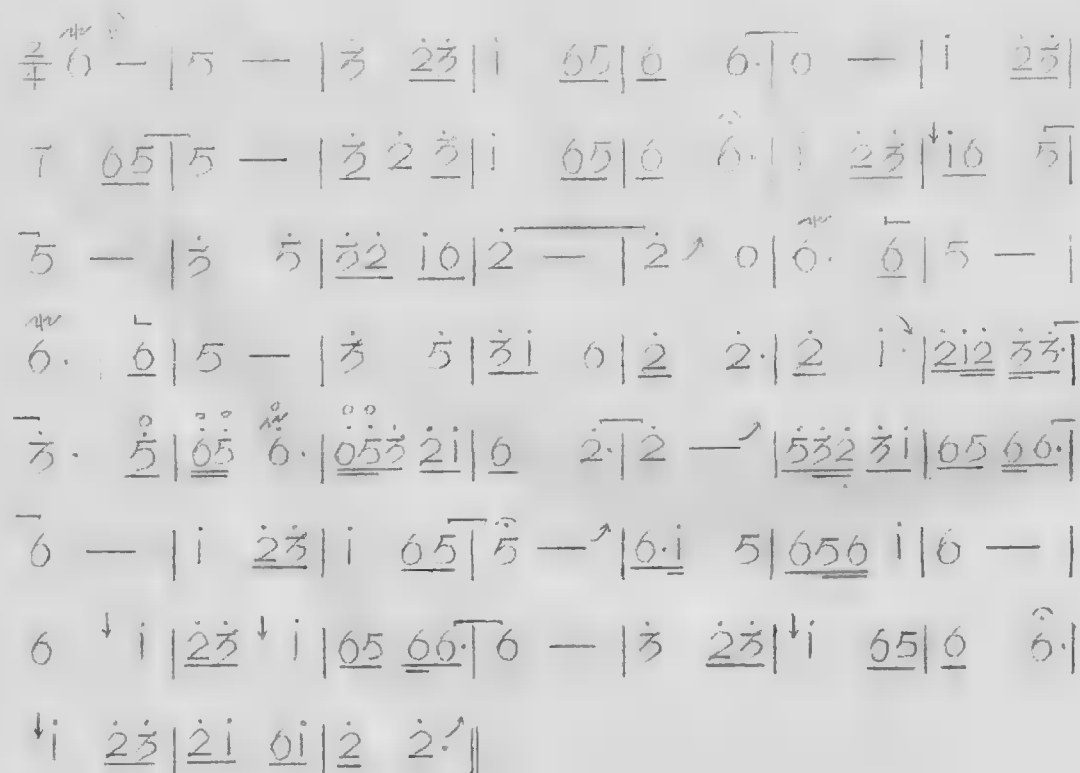 2/4 6 — | 5 — | 3̇ 2̇3̇ | i 65 | 6 6· | 0 — | i 2̇3̇ |
7 65 | 5 — | 3̇ 2̇ 3̇ | i 65 | 6 6· | i 2̇3̇ | ↓i6 5 |
5 — | 3̇ 5̇ | 5̇2̇ i0 | 2̇ — | 2̇↗ 0 | 6· 6 | 5 — |
6· 6 | 5 — | 3̇ 5̇ | 3̇i 0 | 2̇ 2̇· | 2̇ i· | 2̇i2̇ 3̇3̇· |
3̇· 5̇ | 6̇5̇ 6̇· | 05̇3̇ 2̇i | 6 2̇· | 2̇ —↗ | 5̇3̇2̇ 3̇i | 65 66· |
6 — | i 2̇3̇ | i 65 | 5 —↗ | 6·i 5 | 656 i | 6 — |
6 ↓i | 2̇3̇ ↓i | 65 66· | 6 — | 3̇ 2̇3̇ | ↓i 65 | 6 6· |
↓i 2̇3̇ | 2̇i 0i | 2̇ 2̇·↗ ||